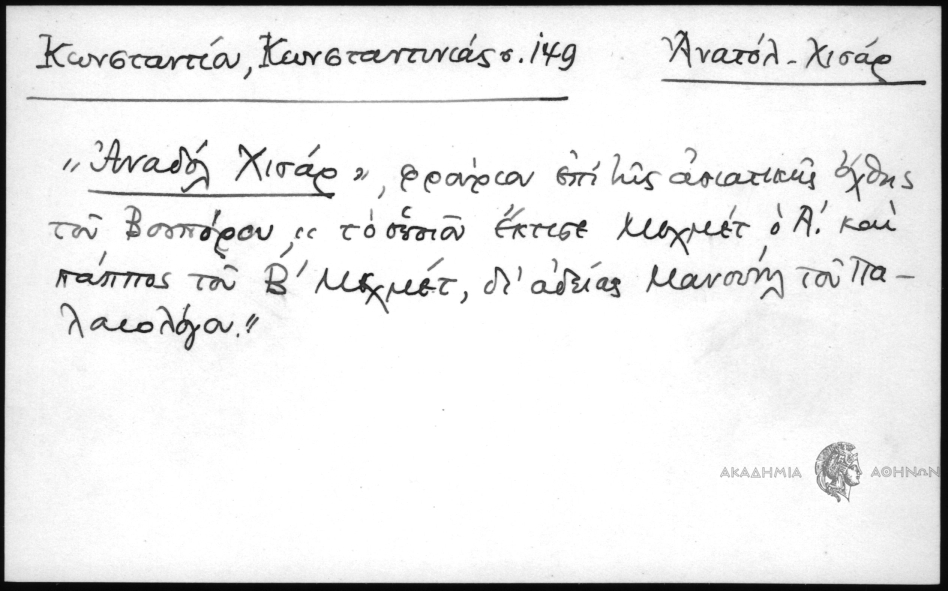 Κωνσταντίου, Κωνσταντινιάς σ. 149 Ἀνατόλ-Χισάρ
"Ἀναδόλ Χισάρ", φρούριον ἐπί τῆς ἀσιατικῆς ὄχθης
τοῦ Βοσπόρου, "τὸ ὁποῖον ἔκτισε Μεχμέτ ὁ Α! καὶ
πάππος τοῦ Β' Μεχμέτ, δι' ἀδείας Μανουήλ τοῦ Πα-
λαιολόγου."
ΑΚΑΔΗΜΙΑ ΑΘΗΝΩΝ